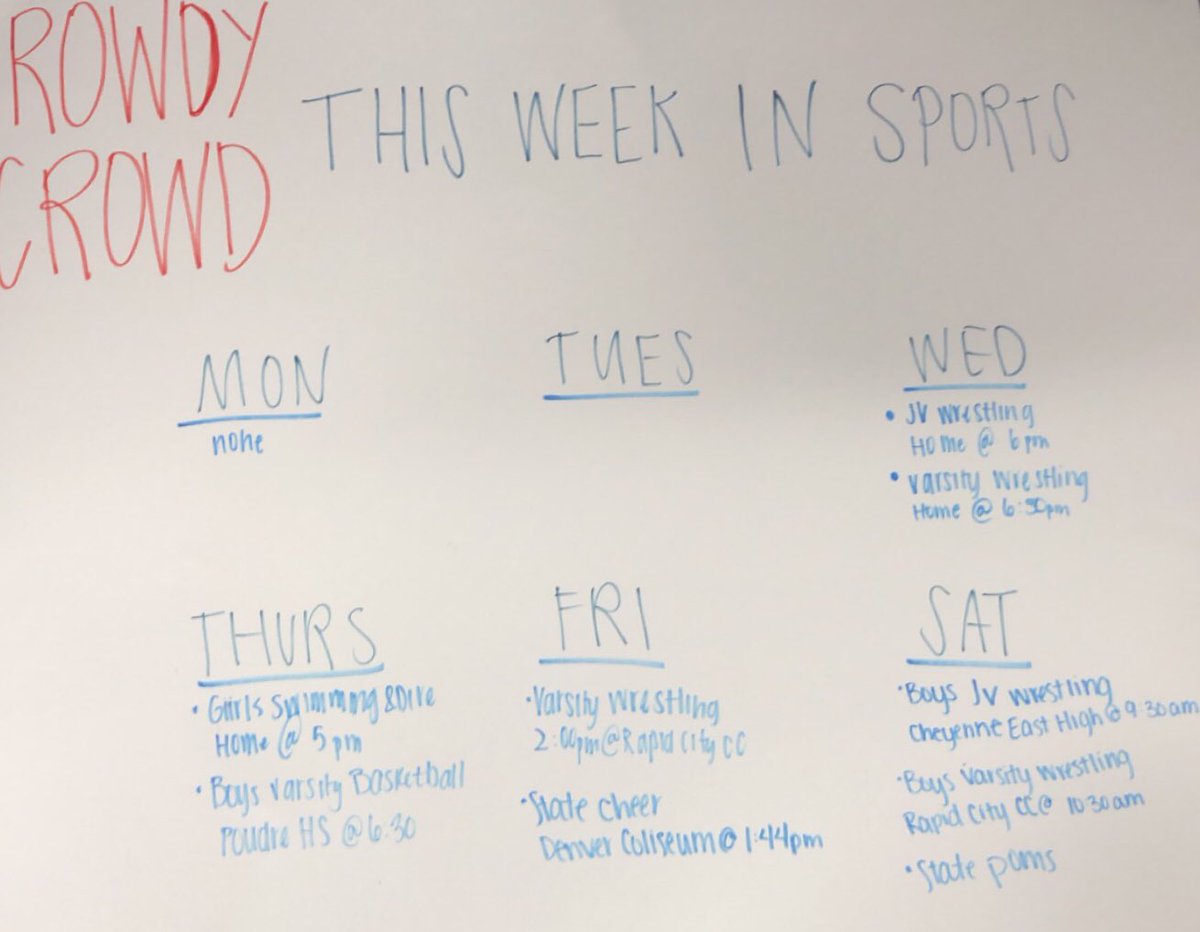 ROWDY
CROWD
THIS WEEK IN SPORTS
MON
none
TUES
WED
• JV wrestling
Home @ 6pm
• Varsity wrestling
Home @ 6:30pm
THURS
• Girls Swimming & Dive
Home @ 5pm
• Boys Varsity Basketball
Poudre HS @ 6:30
FRI
• Varsity wrestling
2:00pm @ Rapid City CC
• State cheer
Denver Coliseum @ 1:44pm
SAT
• Boys JV wrestling
Cheyenne East High @ 9:30am
• Boys Varsity wrestling
Rapid City CC @ 10:30am
• State poms